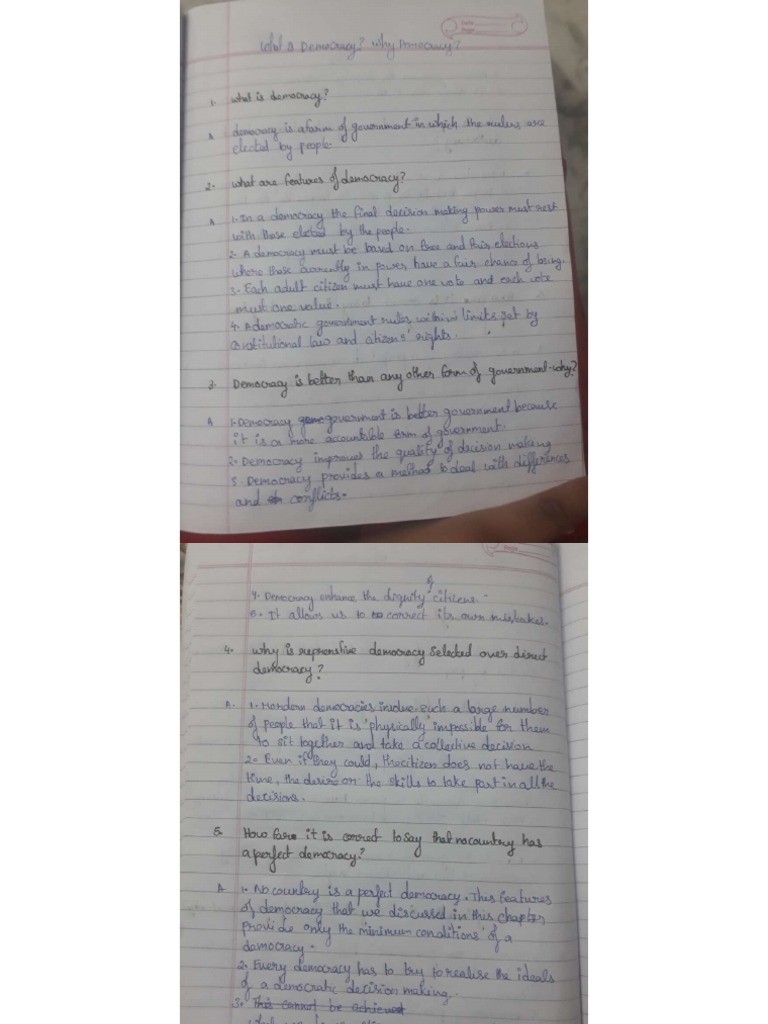 Date
Page
What is Democracy? Why Democracy?
1. what is democracy?
A democracy is a form of government in which the rulers are
elected by people.
2. what are features of democracy?
A 1. In a democracy the final decision making power must rest
with those elected by the people.
2. A democracy must be based on free and fair elections
where those currently in power have a fair chance of losing.
3. Each adult citizen must have one vote and each vote
must one value.
4. A democratic government rules within limits set by
constitutional law and citizens' rights.
3. Democracy is better than any other form of government-why?
A 1. Democracy government is better government because
it is a more accountable form of government.
2. Democracy improves the quality of decision making
3. Democracy provides a method to deal with differences
and conflicts.
Page
4. Democracy enhance the dignity of citizens.
5. It allows us to correct its own mistakes.
4. why is represntive democracy selected over direct
democracy?
A. 1. Mordern democracies involve such a large number
of people that it is 'physically' impossible for them
to sit together and take a collective decision
2. Even if they could, the citizen does not have the
time, the desire or the skills to take part in all the
decisions.
5. How fare it is correct to say that no country has
a perfect democracy?
A 1. No country is a perfect democracy. This features
of democracy that we discussed in this chapter
provide only the minimum conditions of a
democracy.
2. Every democracy has to try to realise the ideals
of a democratic decision making.
3. This cannot be achieved